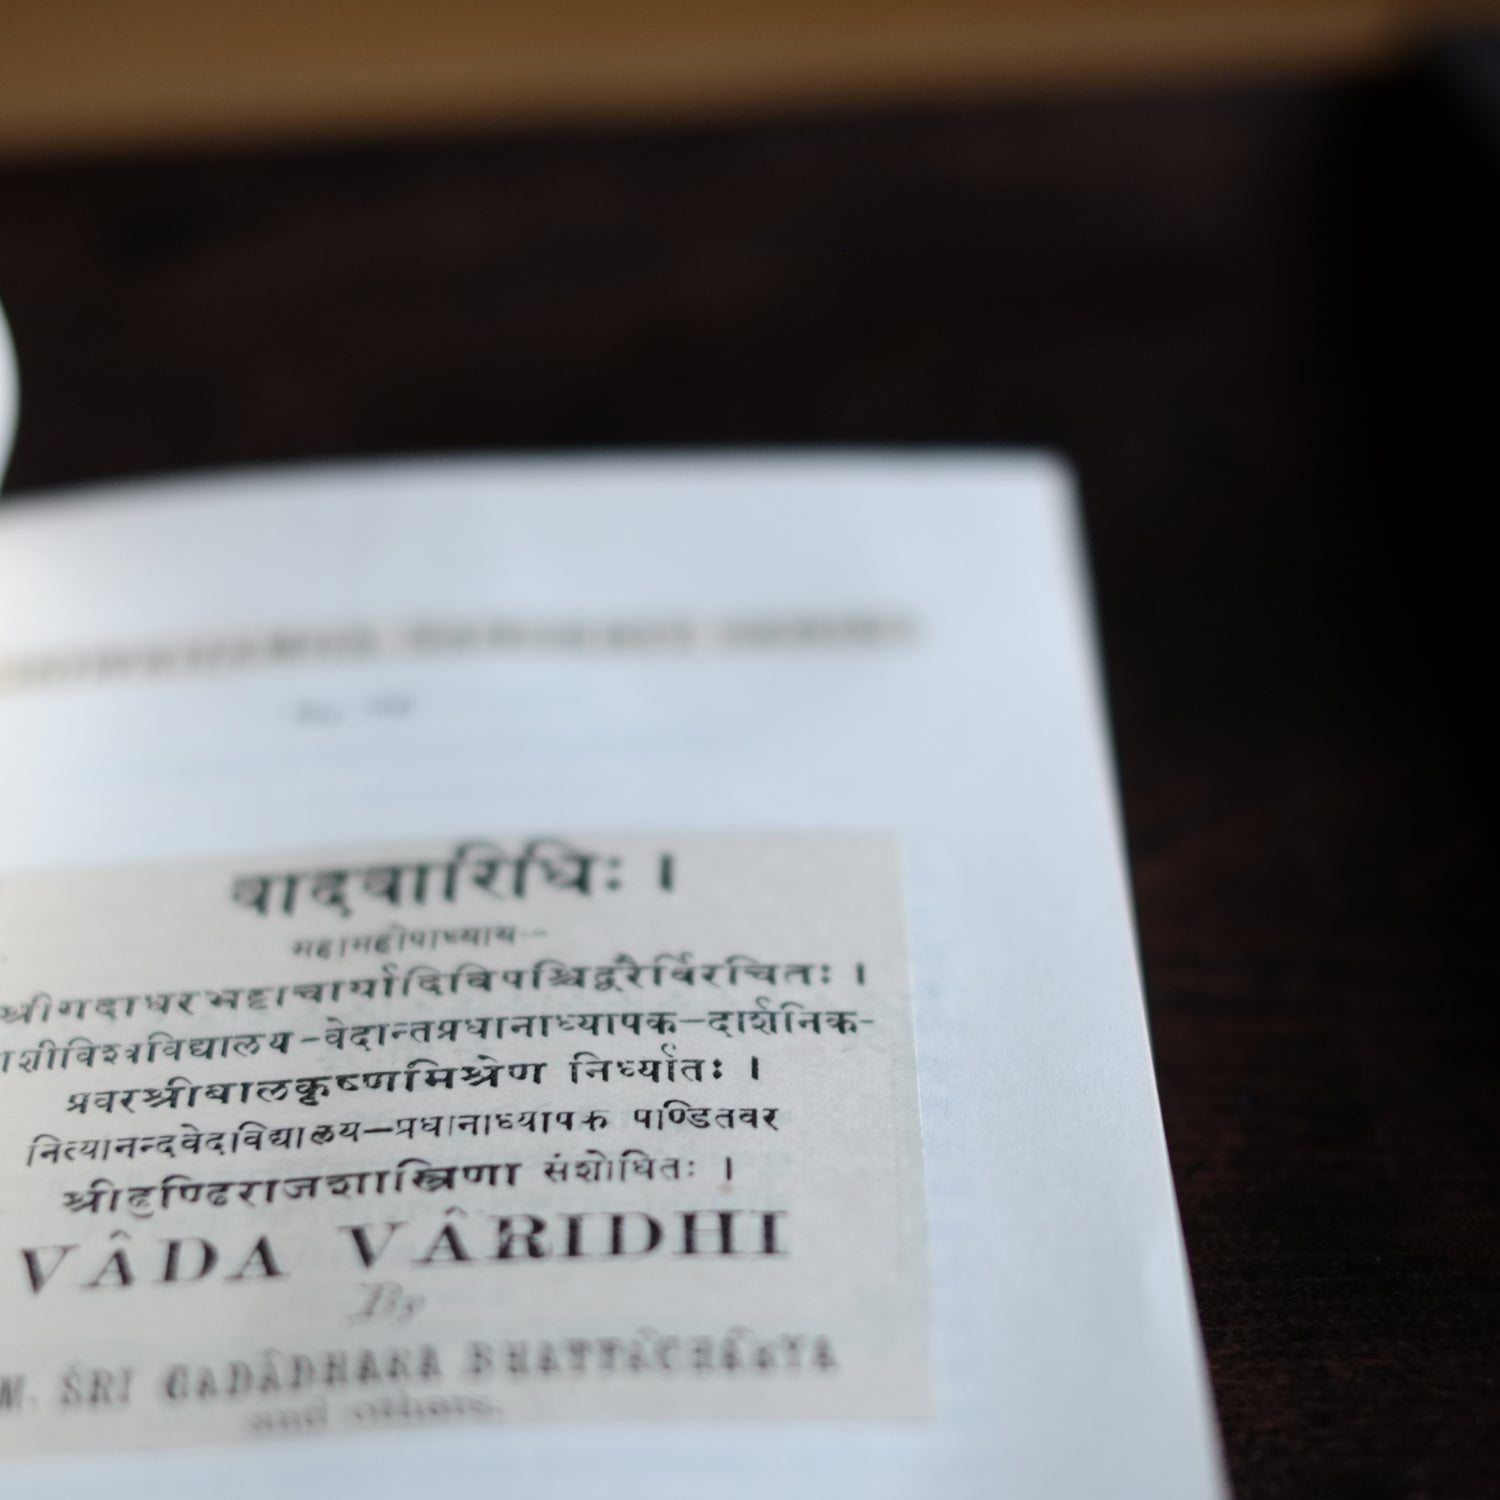 वादवारिधिः ।
महामहोपाध्याय--
श्रीगदाधरभट्टाचार्यादिविपश्चिद्वरैर्विरचितः ।
शीविश्वविद्यालय-वेदान्तप्रधानाध्यापक–दार्शनिक-
प्रवरश्रीबालकृष्णमिश्रेण निर्ध्यातः ।
नित्यानन्दवेदविद्यालय–प्रधानाध्यापक पाण्डितवर
श्रीढुण्ढिराजशास्त्रिणा संशोधितः ।
VÂDA VÂRIDHI
By
M. ŚRI GADÂDHARA BHATTÂCHÂRYA
and others.